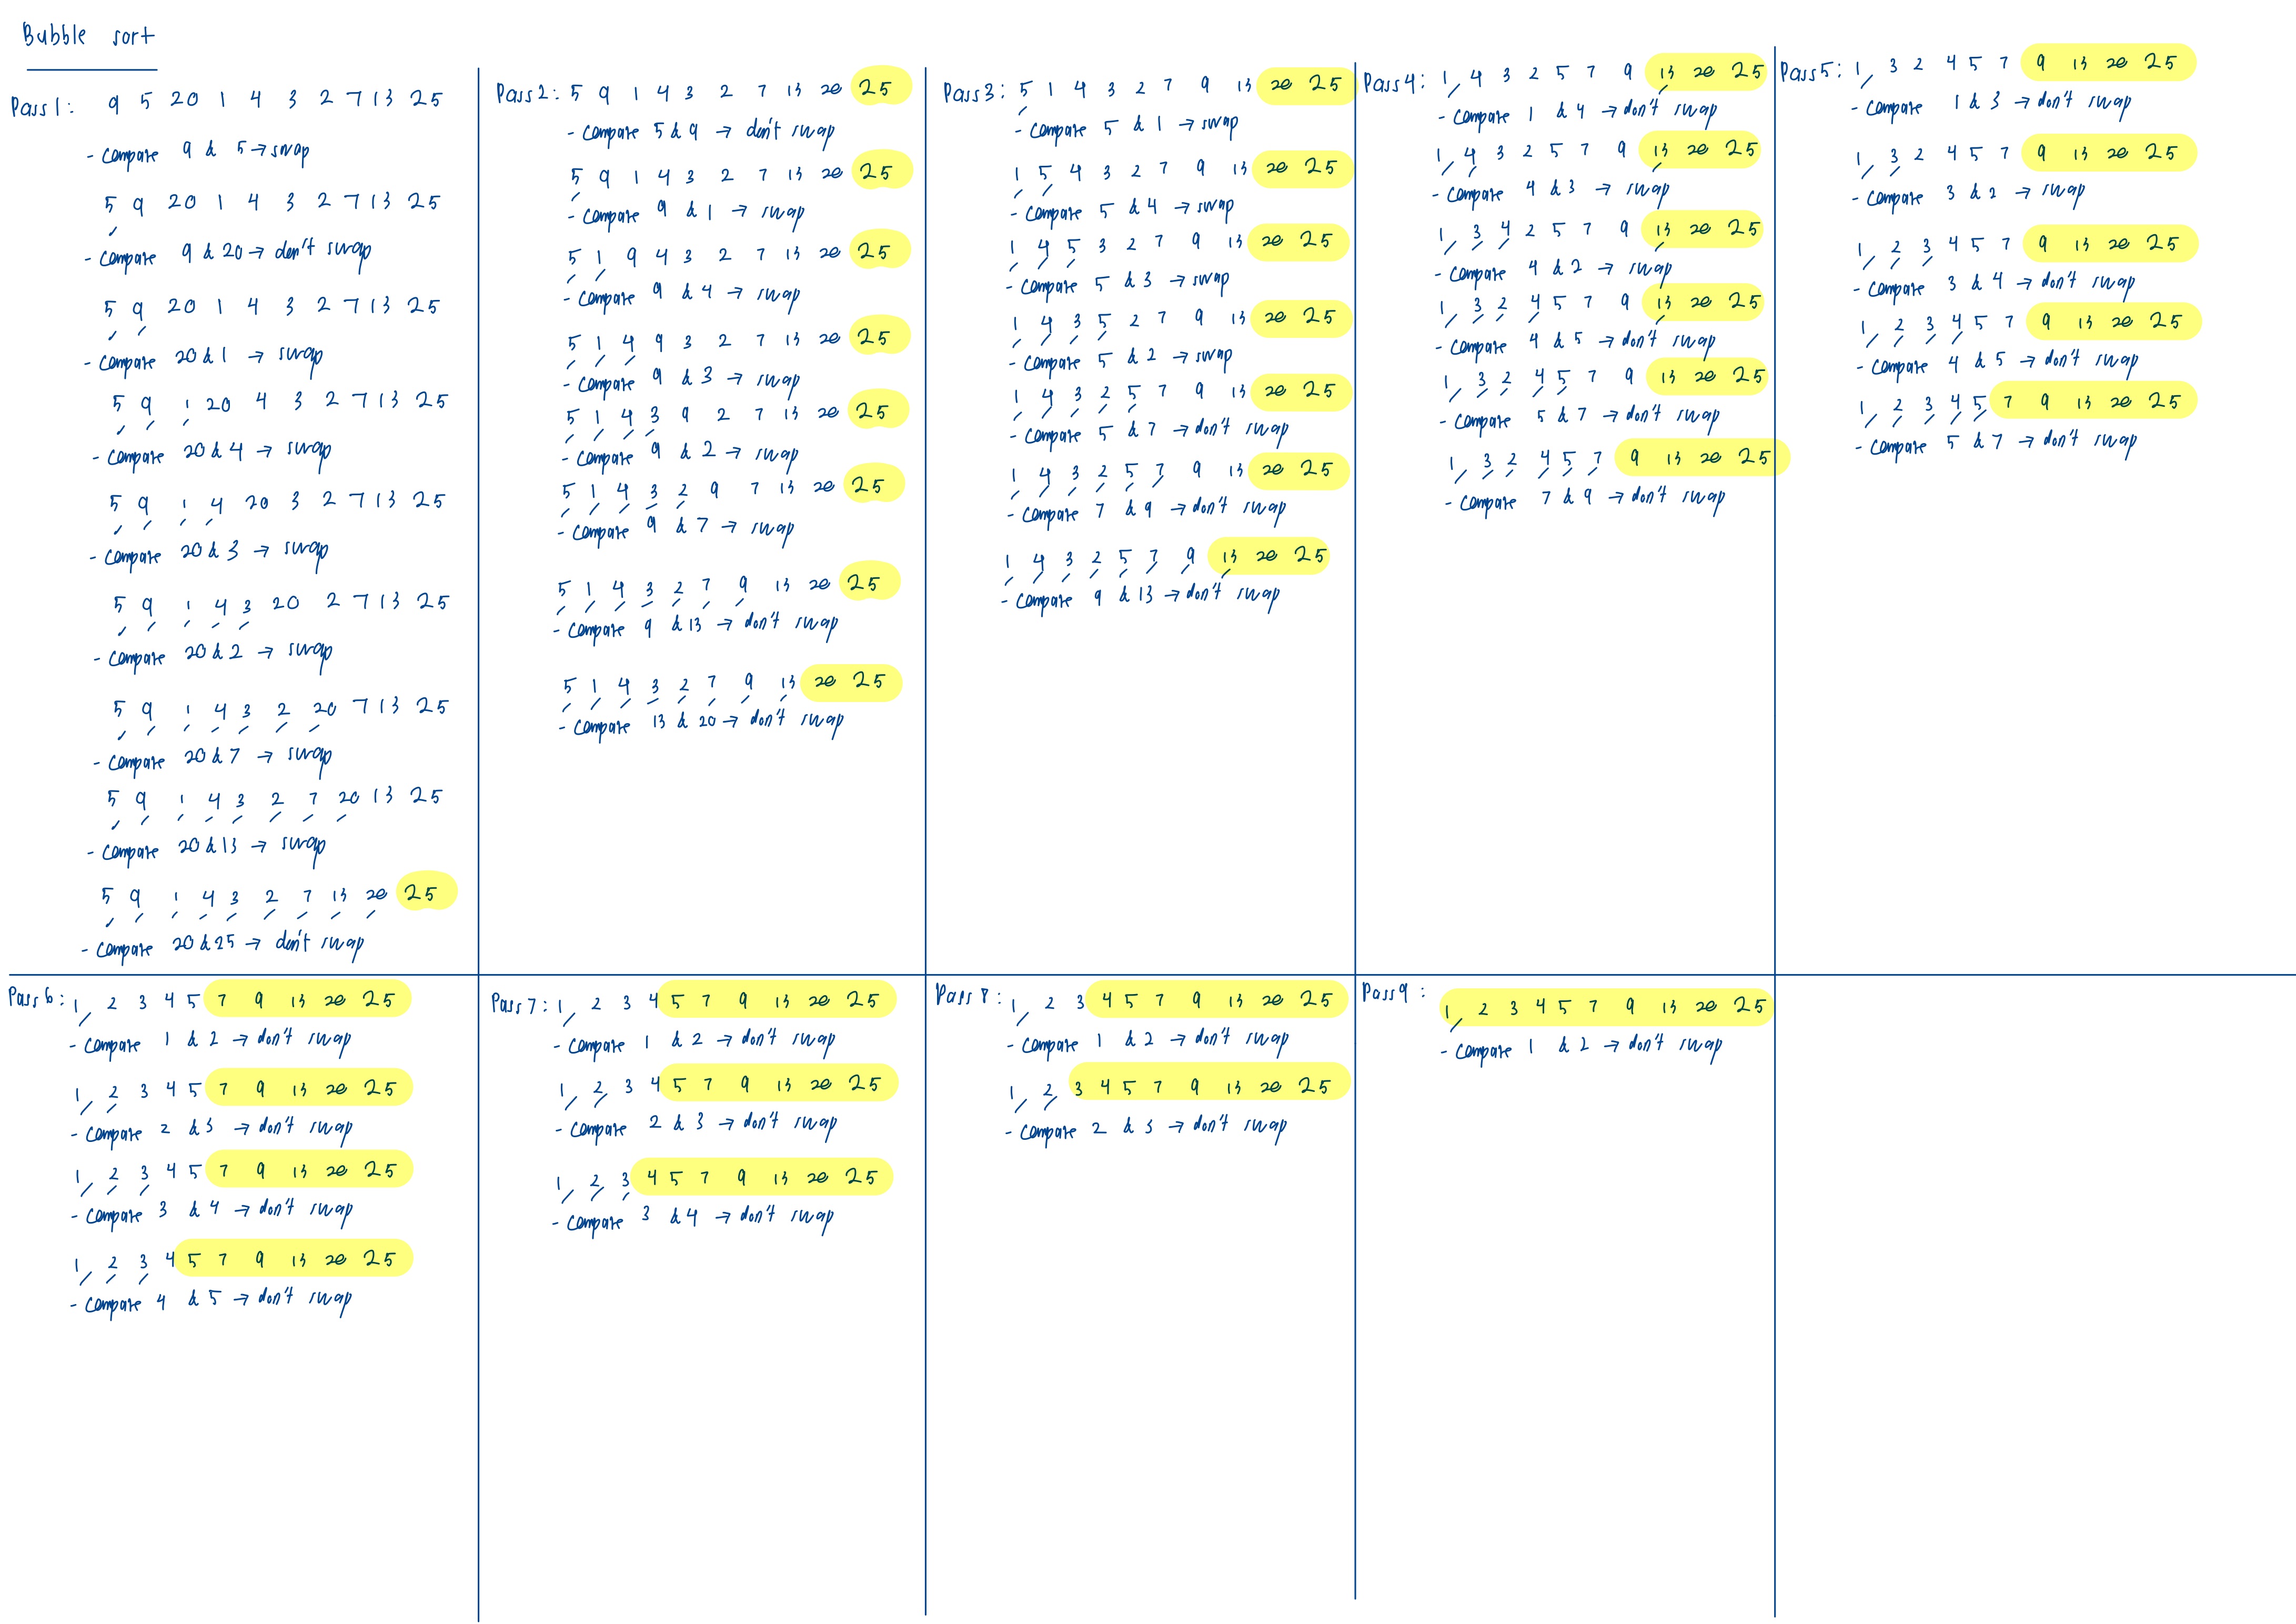 Bubble sort
Pass 1: 9 5 20 1 4 3 2 7 13 25
- Compare 9 & 5 → swap
5 9 20 1 4 3 2 7 13 25
- Compare 9 & 20 → don't swap
5 9 20 1 4 3 2 7 13 25
- Compare 20 & 1 → swap
5 9 1 20 4 3 2 7 13 25
- Compare 20 & 4 → swap
5 9 1 4 20 3 2 7 13 25
- Compare 20 & 3 → swap
5 9 1 4 3 20 2 7 13 25
- Compare 20 & 2 → swap
5 9 1 4 3 2 20 7 13 25
- Compare 20 & 7 → swap
5 9 1 4 3 2 7 20 13 25
- Compare 20 & 13 → swap
5 9 1 4 3 2 7 13 20 25
- Compare 20 & 25 → don't swap
Pass 2: 5 9 1 4 3 2 7 13 20 25
- Compare 5 & 9 → don't swap
5 9 1 4 3 2 7 13 20 25
- Compare 9 & 1 → swap
5 1 9 4 3 2 7 13 20 25
- Compare 9 & 4 → swap
5 1 4 9 3 2 7 13 20 25
- Compare 9 & 3 → swap
5 1 4 3 9 2 7 13 20 25
- Compare 9 & 2 → swap
5 1 4 3 2 9 7 13 20 25
- Compare 9 & 7 → swap
5 1 4 3 2 7 9 13 20 25
- Compare 9 & 13 → don't swap
5 1 4 3 2 7 9 13 20 25
- Compare 13 & 20 → don't swap
Pass 3: 5 1 4 3 2 7 9 13 20 25
- Compare 5 & 1 → swap
1 5 4 3 2 7 9 13 20 25
- Compare 5 & 4 → swap
1 4 5 3 2 7 9 13 20 25
- Compare 5 & 3 → swap
1 4 3 5 2 7 9 13 20 25
- Compare 5 & 2 → swap
1 4 3 2 5 7 9 13 20 25
- Compare 5 & 7 → don't swap
1 4 3 2 5 7 9 13 20 25
- Compare 7 & 9 → don't swap
1 4 3 2 5 7 9 13 20 25
- Compare 9 & 13 → don't swap
Pass 4: 1 4 3 2 5 7 9 13 20 25
- Compare 1 & 4 → don't swap
1 4 3 2 5 7 9 13 20 25
- Compare 4 & 3 → swap
1 3 4 2 5 7 9 13 20 25
- Compare 4 & 2 → swap
1 3 2 4 5 7 9 13 20 25
- Compare 4 & 5 → don't swap
1 3 2 4 5 7 9 13 20 25
- Compare 5 & 7 → don't swap
1 3 2 4 5 7 9 13 20 25
- Compare 7 & 9 → don't swap
Pass 5: 1 3 2 4 5 7 9 13 20 25
- Compare 1 & 3 → don't swap
1 3 2 4 5 7 9 13 20 25
- Compare 3 & 2 → swap
1 2 3 4 5 7 9 13 20 25
- Compare 3 & 4 → don't swap
1 2 3 4 5 7 9 13 20 25
- Compare 4 & 5 → don't swap
1 2 3 4 5 7 9 13 20 25
- Compare 5 & 7 → don't swap
Pass 6: 1 2 3 4 5 7 9 13 20 25
- Compare 1 & 2 → don't swap
1 2 3 4 5 7 9 13 20 25
- Compare 2 & 3 → don't swap
1 2 3 4 5 7 9 13 20 25
- Compare 3 & 4 → don't swap
1 2 3 4 5 7 9 13 20 25
- Compare 4 & 5 → don't swap
Pass 7: 1 2 3 4 5 7 9 13 20 25
- Compare 1 & 2 → don't swap
1 2 3 4 5 7 9 13 20 25
- Compare 2 & 3 → don't swap
1 2 3 4 5 7 9 13 20 25
- Compare 3 & 4 → don't swap
Pass 8: 1 2 3 4 5 7 9 13 20 25
- Compare 1 & 2 → don't swap
1 2 3 4 5 7 9 13 20 25
- Compare 2 & 3 → don't swap
Pass 9: 1 2 3 4 5 7 9 13 20 25
- Compare 1 & 2 → don't swap